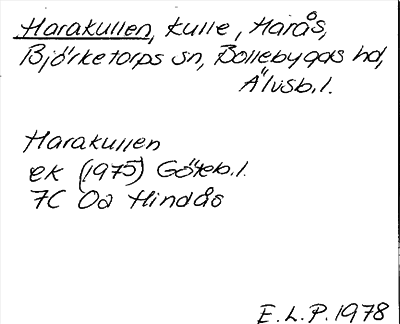 Harakullen, kulle, Harås,
Björketorps sn, Bollebygds hd,
Älvsb.l.
Harakullen
ek (1975) Göteb.l.
7C 0a Hindås
E.L.P. 1978